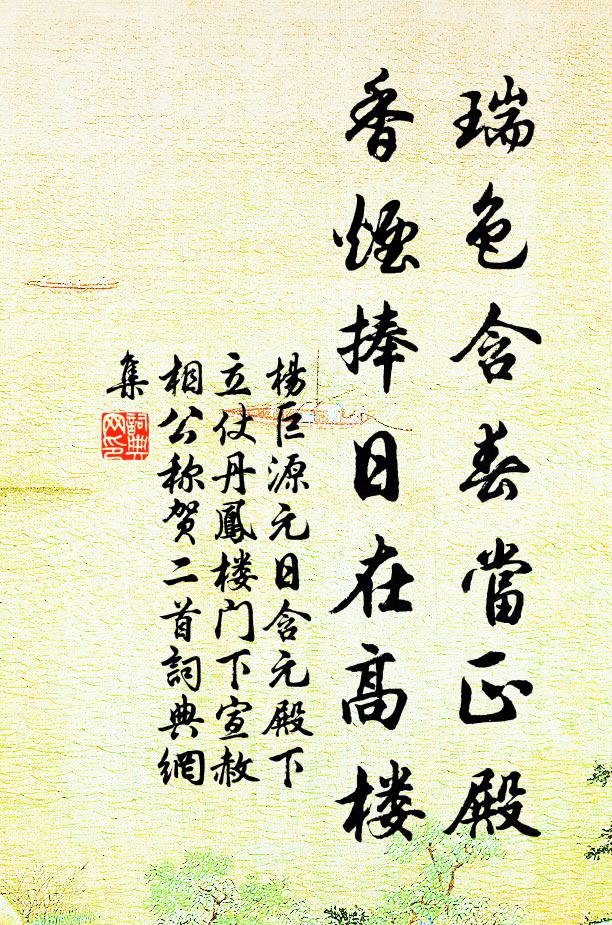 瑞色含春當正殿
香煙捧日在高楼
楊巨源元日含元殿下
立仗丹鳳楼门下宣赦
相公称贺二首詞典網
集
詞典
网印